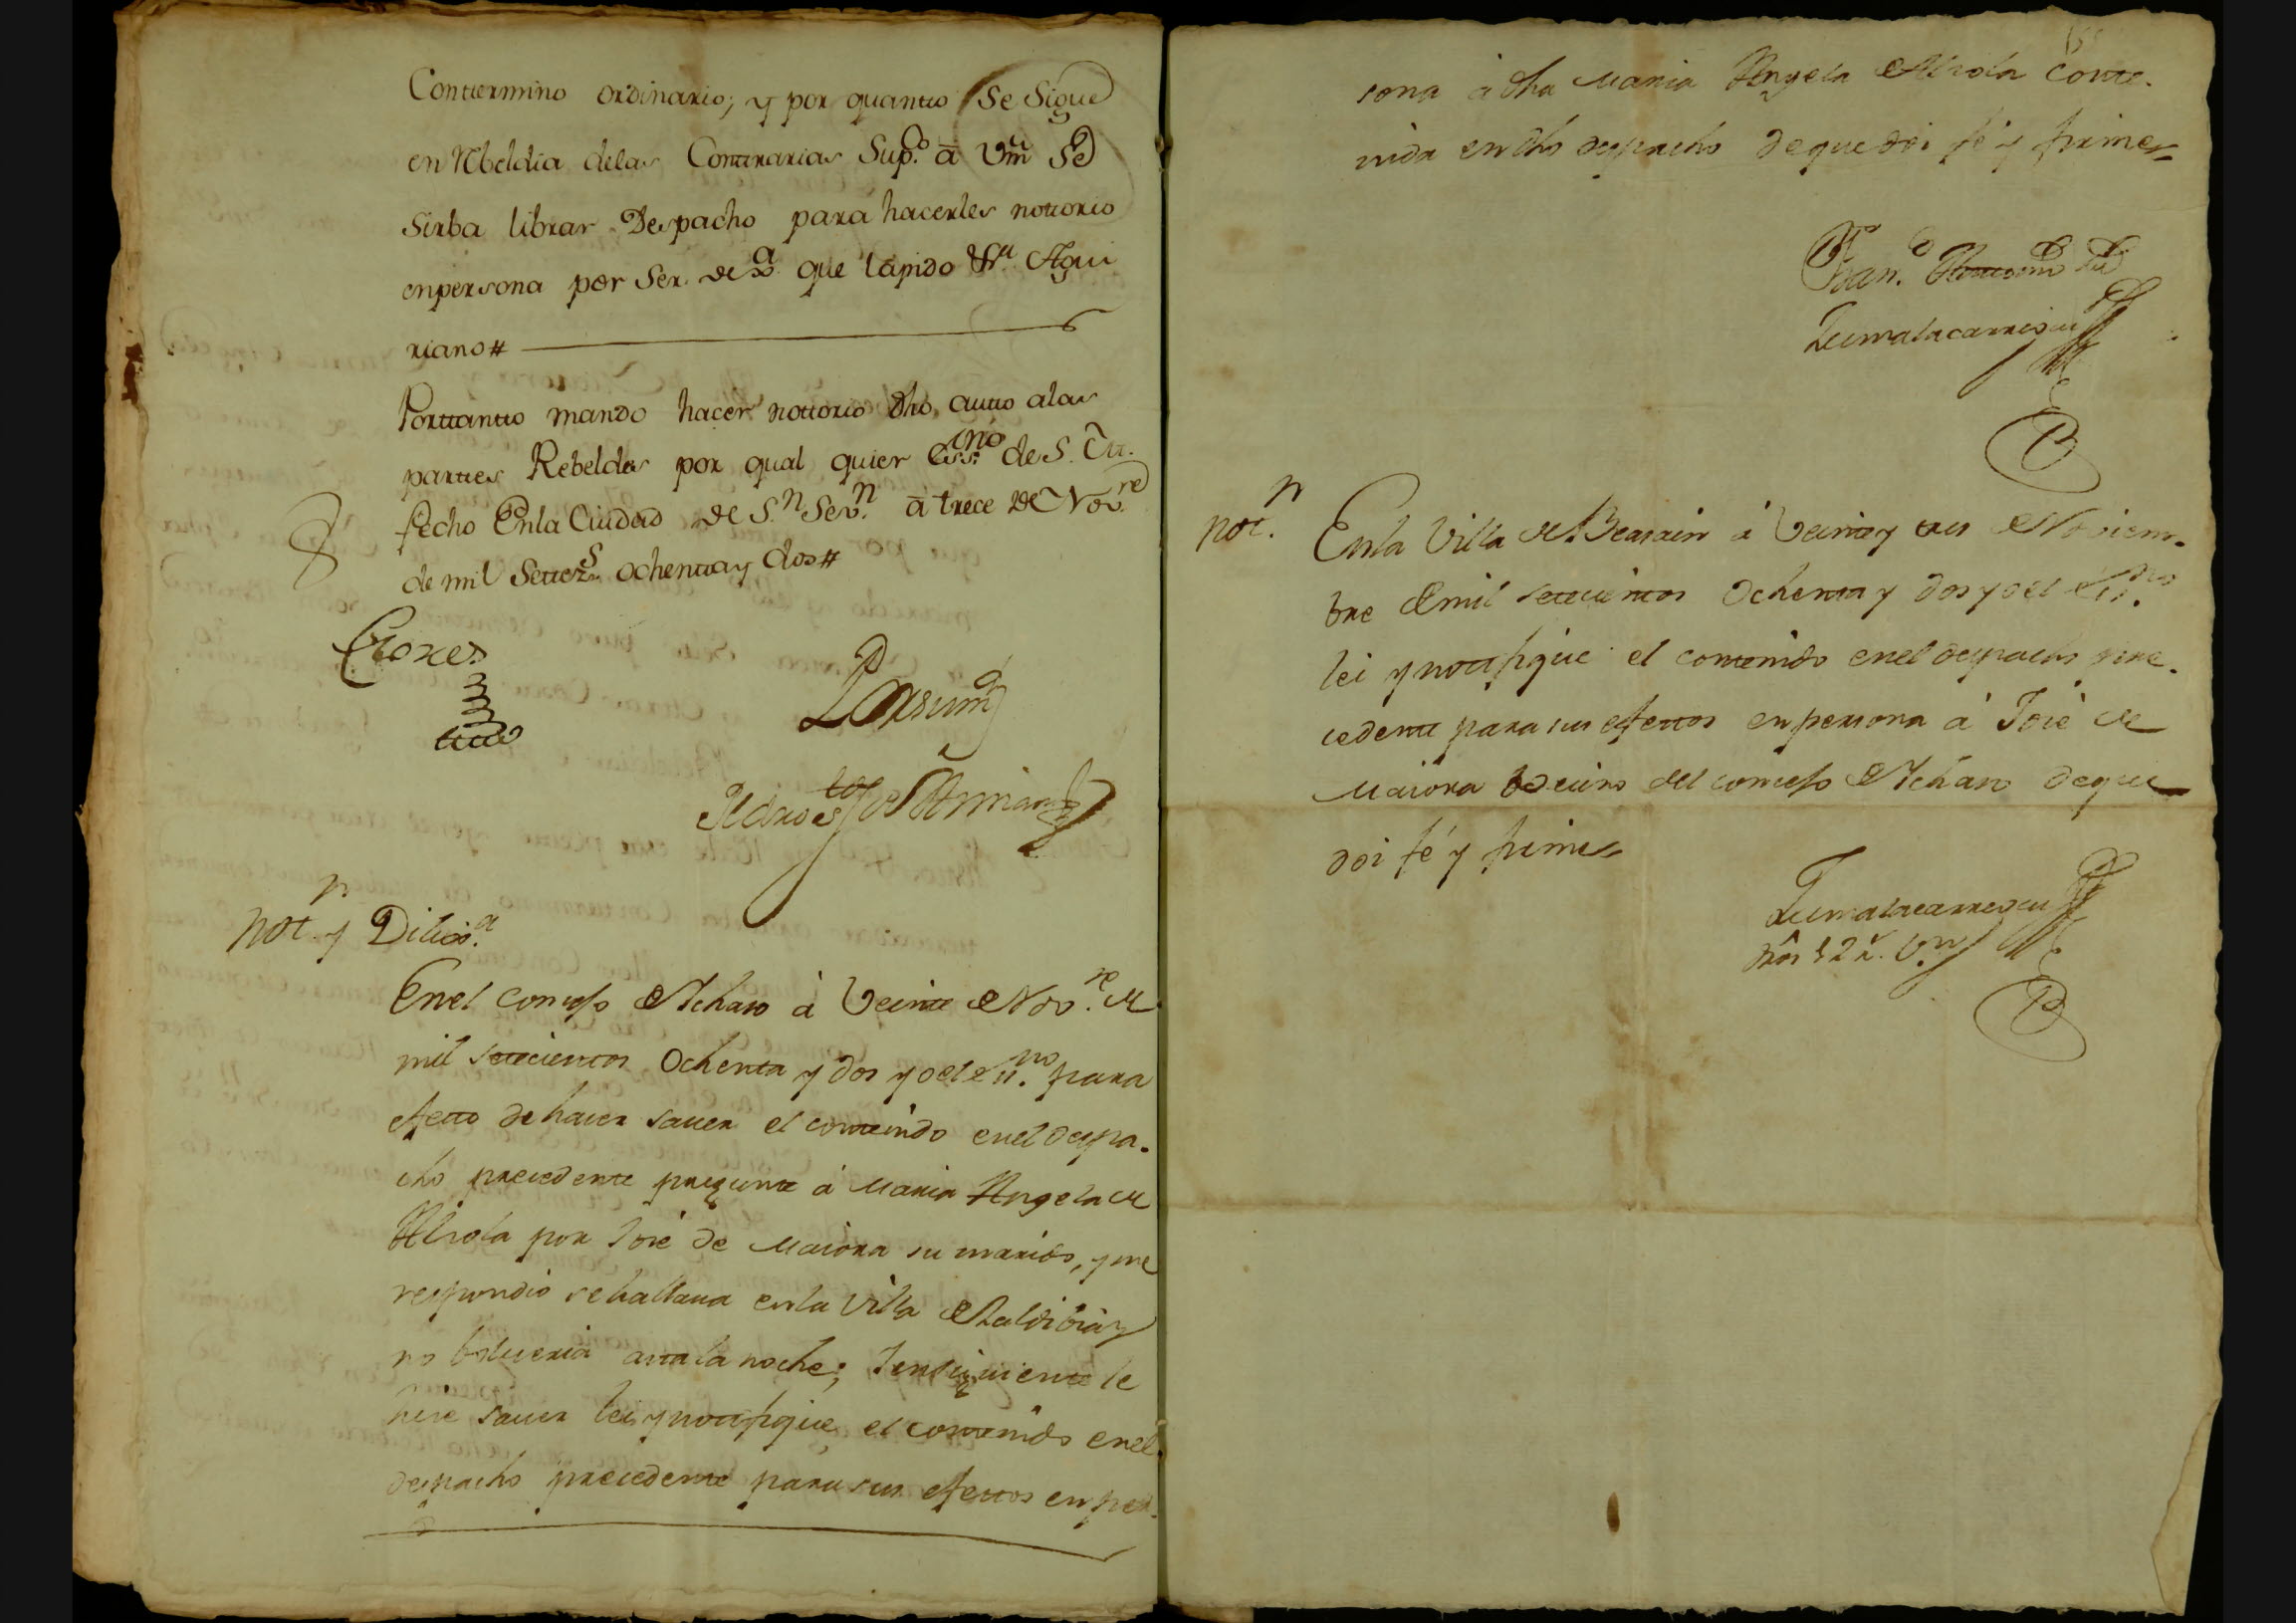 Conttermino ordinario; y por quantto se Sigue
en Rbeldia delas Conttrarias Sup.co â Vm Se
Sirba librar Despacho para hacerles nottorio
enpersona por Ser de xa. que lapido &ra Agui
riano#
Porttantto mando hacer nottorio dho autto alas
parttes Rebeldes por qual quier Ess.no de S. M.
fecho Enla Ciudad de S.n Sev.n â trece de Nov.re
de mil Settez.s ochenttay dos#
Pedro Jos
not.n y Dilig.a
Enel concejo de Ichaso à Veinte de Nov.re de
mil settecientos Ochenta y dos yo el ess.no para
efetto de hacer saver el contenido enel despa-
cho precedente pregunte à Maria Angela de
Alsola por Josè de Maiora su marido, y me
respondio se hallava enla Villa de Zaldibia y
no bolveria asta la noche; Iensiguiente le
hice saver lei y nottifique el contenido enel
despacho precedente para sus efectos en per-
sona à dha Maria Angela de Alsola Conte-
nida en dho despacho de que doi fè y firme
Fran.co Antonio de
Zumalacarregui
not.n
Enla Villa de Beasain à Veinte y tres de Noviem-
bre de mil settecientos Ochenta y dos yo el ess.no
lei y nottifique el contenido enel despacho pre-
cedente para sus efectos en persona à Josè de
Maiora Vecino del concejo de Ichaso de que
doi fé y firme
Zumalacarregui
dros 12 r. Vn